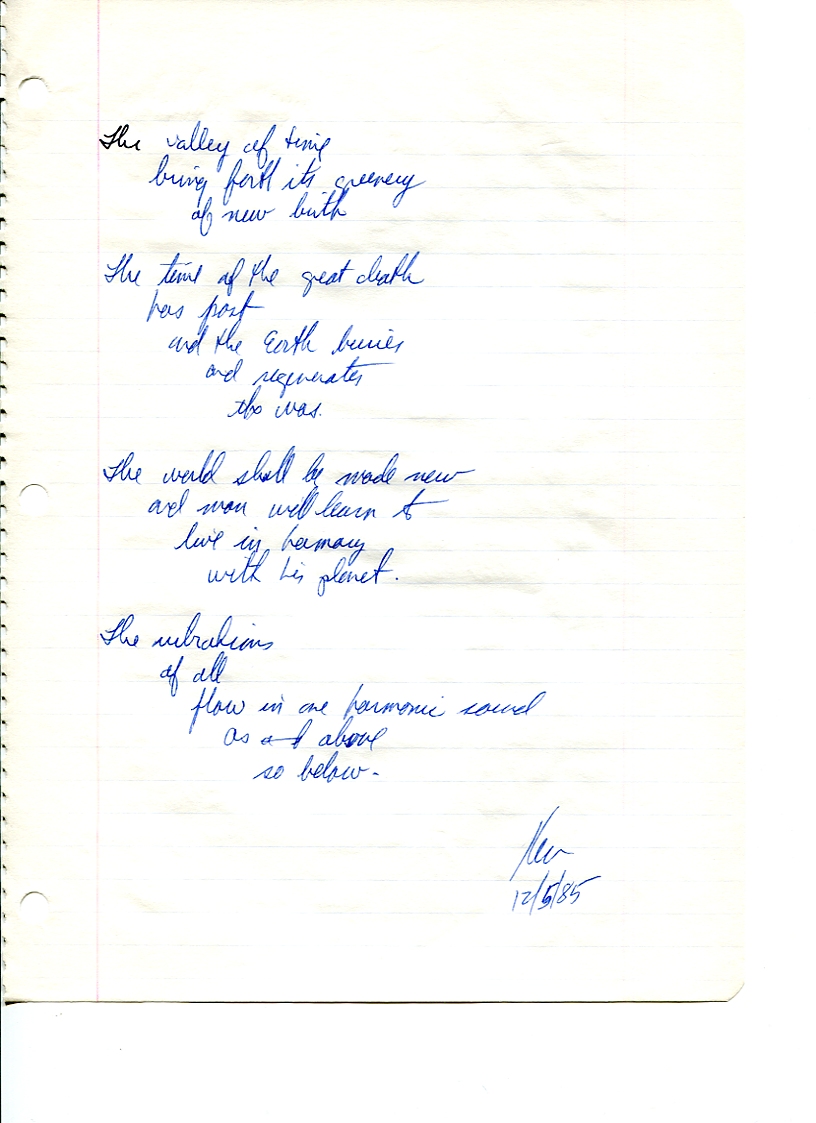 The valley of time
bring forth its greenery
of new birth
The time of the great death
has past
and the Earth buries
and regenerates
tho was.
The world shall be made new
and man will learn to
live in harmony
with his planet.
The vibrations
of all
flow in one harmonic sound
as above
so below-
Ken
12/5/85